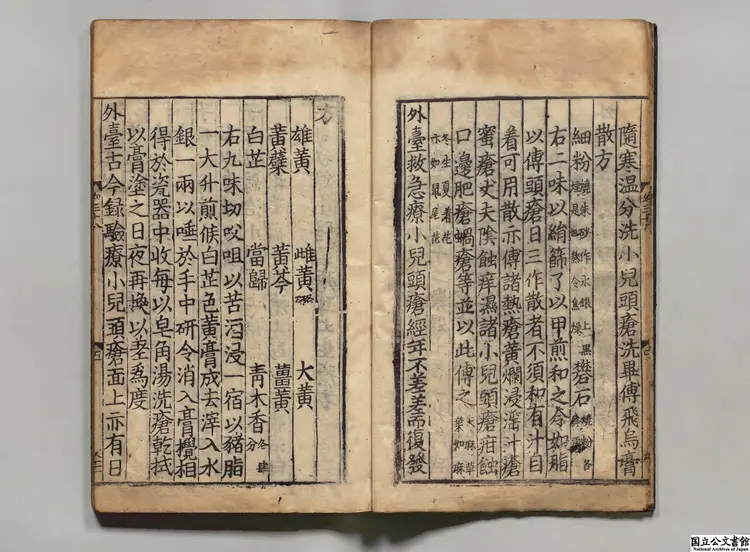 隨寒溫分洗小兒頭瘡洗畢傅飛烏膏
散方
細粉 燒朱砂作水銀上黑煙是也 熬令焦燥 礬石 燒粉各
右二味以絹篩了以甲煎和之令如脂
以傅頭瘡日三作散者不須和有汁自
着可用散亦傅諸熱瘡黃爛浸淫汁瘡
蜜瘡丈夫陰蝕痒濕諸小兒頭瘡疳蝕
口邊肥瘡蝸瘡等並以此傅之 大麻草 葉如麻
冬生夏着花
亦如鼠尾花
外臺救急療小兒頭瘡經年不差差而復發
方
雄黃 雌黃 大黃
黃蘗 黃芩 薑黃
白芷 當歸 青木香 各肆分
右九味切㕮咀以苦酒浸一宿以豬脂
一大升煎候白芷色黃膏成去滓入水
銀一兩以唾於手中研令消入膏攪相
得於瓷器中收每以皂角湯洗瘡乾拭
以膏塗之日夜再換以差為度
外臺古今錄驗療小兒頭瘡面上亦有日
国立公文書館
National Archives of Japan